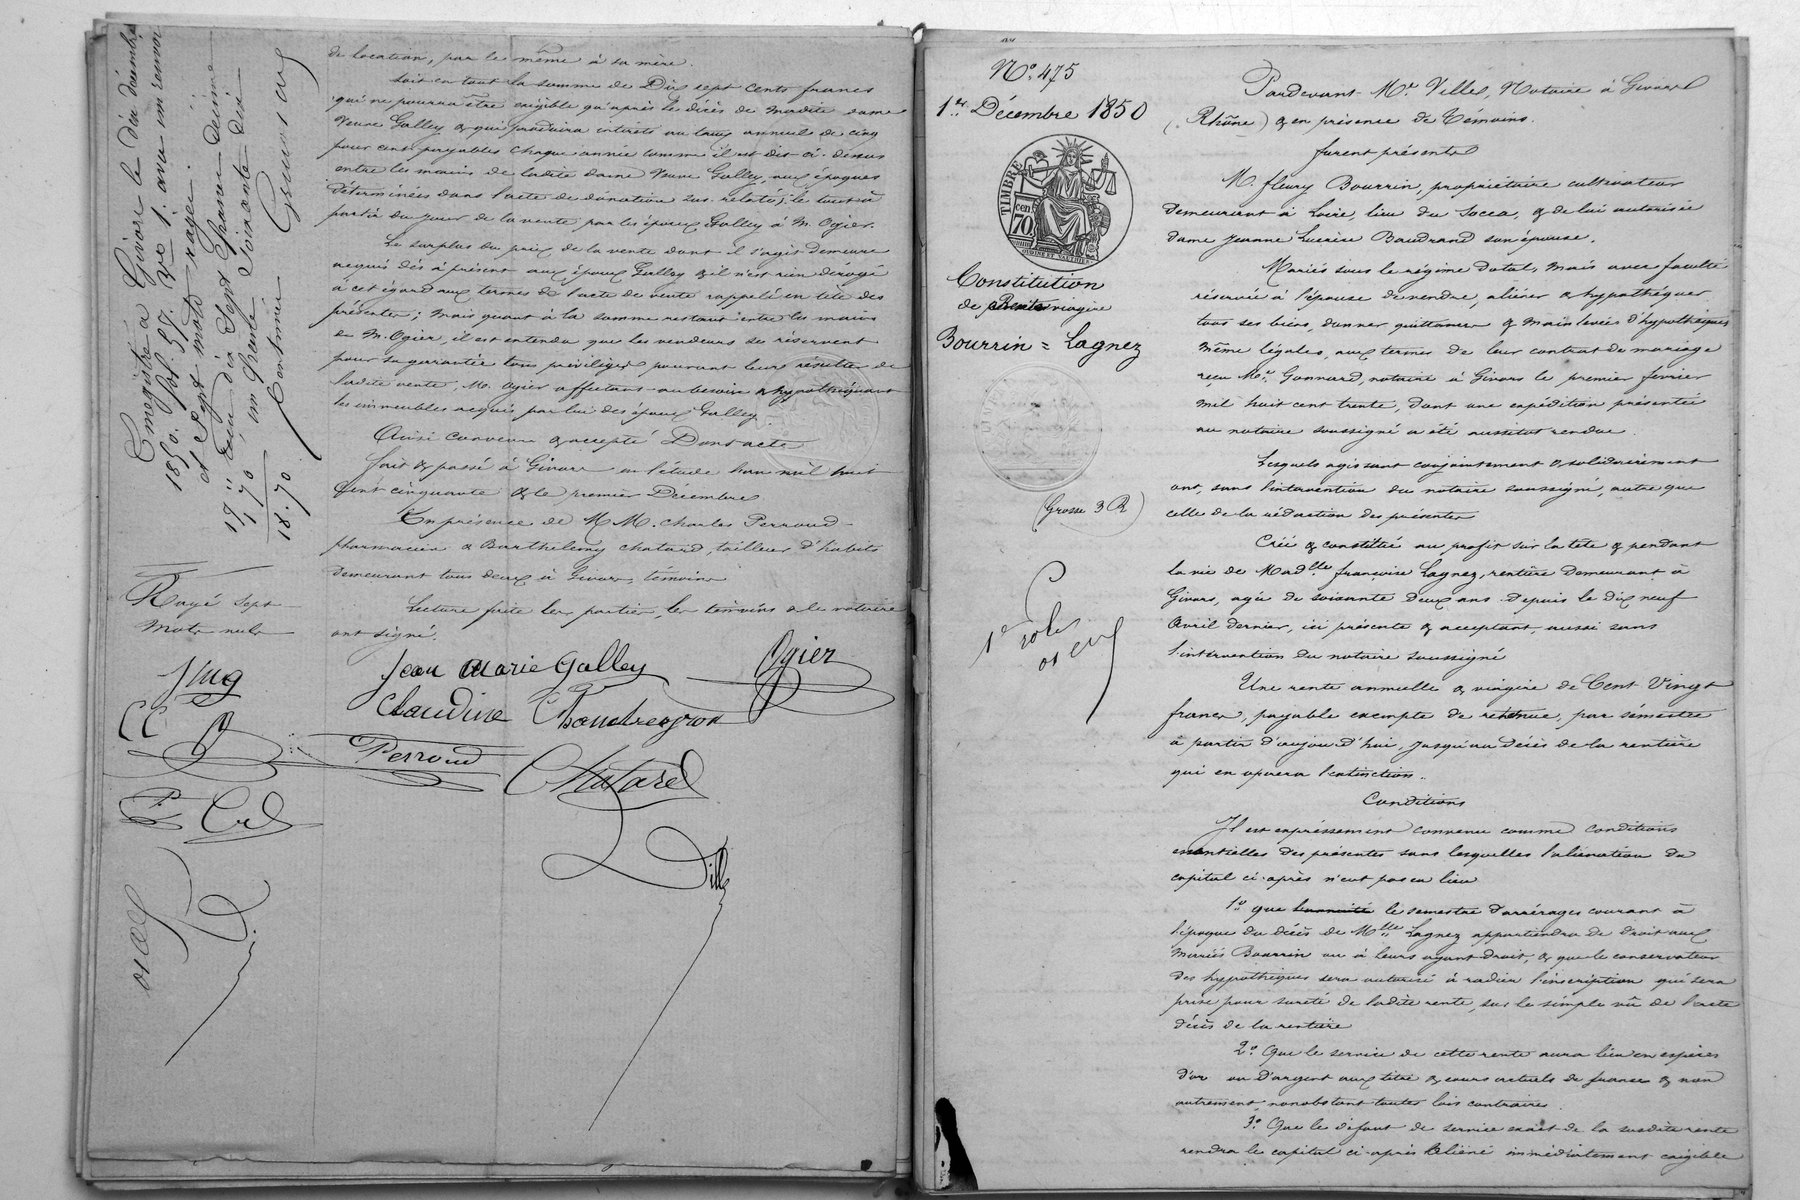 de location, par le même à sa mère.
Soit en tout la somme de Dix sept cents francs
qui ne pourra être exigible qu'après le décès de Madite dame
Veuve Galley & qui produira intérêts au taux annuel de cinq
pour cent payables chaque année comme il est dit ci-dessus
entre les mains de ladite dame Veuve Galley, aux époques
déterminées dans l'acte de donation sus relaté; le tout à
partir du jour de la vente par les époux Galley à M. Ogier.
Le surplus du prix de la vente dont il s'agit demeure
acquis dès à présent aux époux Galley & il n'est rien dérogé
à cet égard aux termes de l'acte de vente rappelé en tête des
présentes; mais quant à la somme restant entre les mains
de M. Ogier, il est entendu que les vendeurs se réservent
pour sa garantie tous privilèges pouvant leurs résulter de
ladite vente, M. Ogier affectant au besoin & hypothéquant
les immeubles acquis par lui des époux Galley.
Ainsi convenu & accepté Dont acte
Fait & passé à Givors en l'étude l'an mil huit
Cent cinquante & le premier Décembre
En présence de M.M. Charles Perroud
pharmacien & Barthélemy Chatard, tailleur d'habits
demeurant tous deux à Givors, témoins
Lecture faite les parties, les témoins & le notaire
ont signé.
Jean Marie Galley Ogier
Claudine
Perroud Chatard
Enregistré à Givors le dix décembre
1850. fol. 57. Vo c. 1. avec un renvoi
et sept mots rayés.
Reçu dix sept francs
décime un franc soixante dix
centimes
17 "
1,70
18.70
Rayé sept
mots nuls
JMG
CC
P Ch
No. 475
1er. Décembre 1850
TIMBRE
70 cen
Constitution
de Rente viagère
Bourrin = Lagnez
(Grosse 3 R)
1er rôle
Pardevant Me Villes, Notaire à Givors
(Rhône) & en présence de Témoins.
furent présents
M. fleury Bourrin, propriétaire cultivateur
demeurant à Loire, lieu du & de lui autorisée
dame Jeanne Lucrèce Baudrand son épouse.
Mariés sous le régime dotal, mais avec faculté
réservée à l'épouse de vendre, aliéner & hypothéquer
tous ses biens, donner quittances & mainlevées d'hypothèques
même légales, aux termes de leur contrat de mariage
reçu Me. Gonnard, notaire à Givors le premier février
mil huit cent trente, dont une expédition présentée
au notaire soussigné a été aussitôt rendue.
Lesquels agissant conjointement & solidairement
ont, sans l'intervention du notaire soussigné, autre que
celle de la rédaction des présentes
Créé & constitué au profit sur la tête & pendant
la vie de Madlle françoise Lagnez, rentière demeurant à
Givors, agée de soixante deux ans depuis le dix neuf
Avril dernier, ici présente & acceptant, aussi sans
l'intervention du notaire soussigné
Une rente annuelle & viagère de Cent Vingt
francs, payable exempte de retenue, par sémestre
à partir d'aujourd'hui, jusqu'au décès de la rentière
qui en opérera l'extinction.
Conditions
Il est expréssement convenu comme conditions
essentielles des présentes sans lesquelles l'aliénation du
capital ci-après n'eut pas eu lieu
1o que le semestre d'arrérages courant à
l'époque du décès de Mlle Lagnez appartiendra de droit aux
mariés Bourrin ou à leurs ayant droit, & que le conservateur
des hypothèques sera autorisé à radier l'inscription qui sera
prise pour sureté de ladite rente, sur le simple vû de l'acte
décès de la rentière
2o Que le service de cette rente aura lieu en espèces
d'or ou d'argent aux titre & cours actuels de france & non
autrement, nonobstant toutes lois contraires
3o Que le défaut de service exact de la susdite rente
rendra le capital ci-après aliéné immédiatement exigible